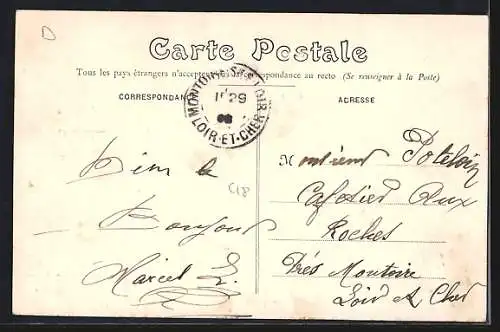 D
Carte Postale
Tous les pays étrangers n'acceptent pas la correspondance au recto (Se renseigner à la Poste)
CORRESPONDANCE
ADRESSE
MONTOIRE-SUR-LE-LOIR
29
08
LOIR-ET-CHER
C18
Bonjour
Marcel L.
Monsieur Poteloin
Cafetier Aux
Roches
Près Montoire
Loir et Cher